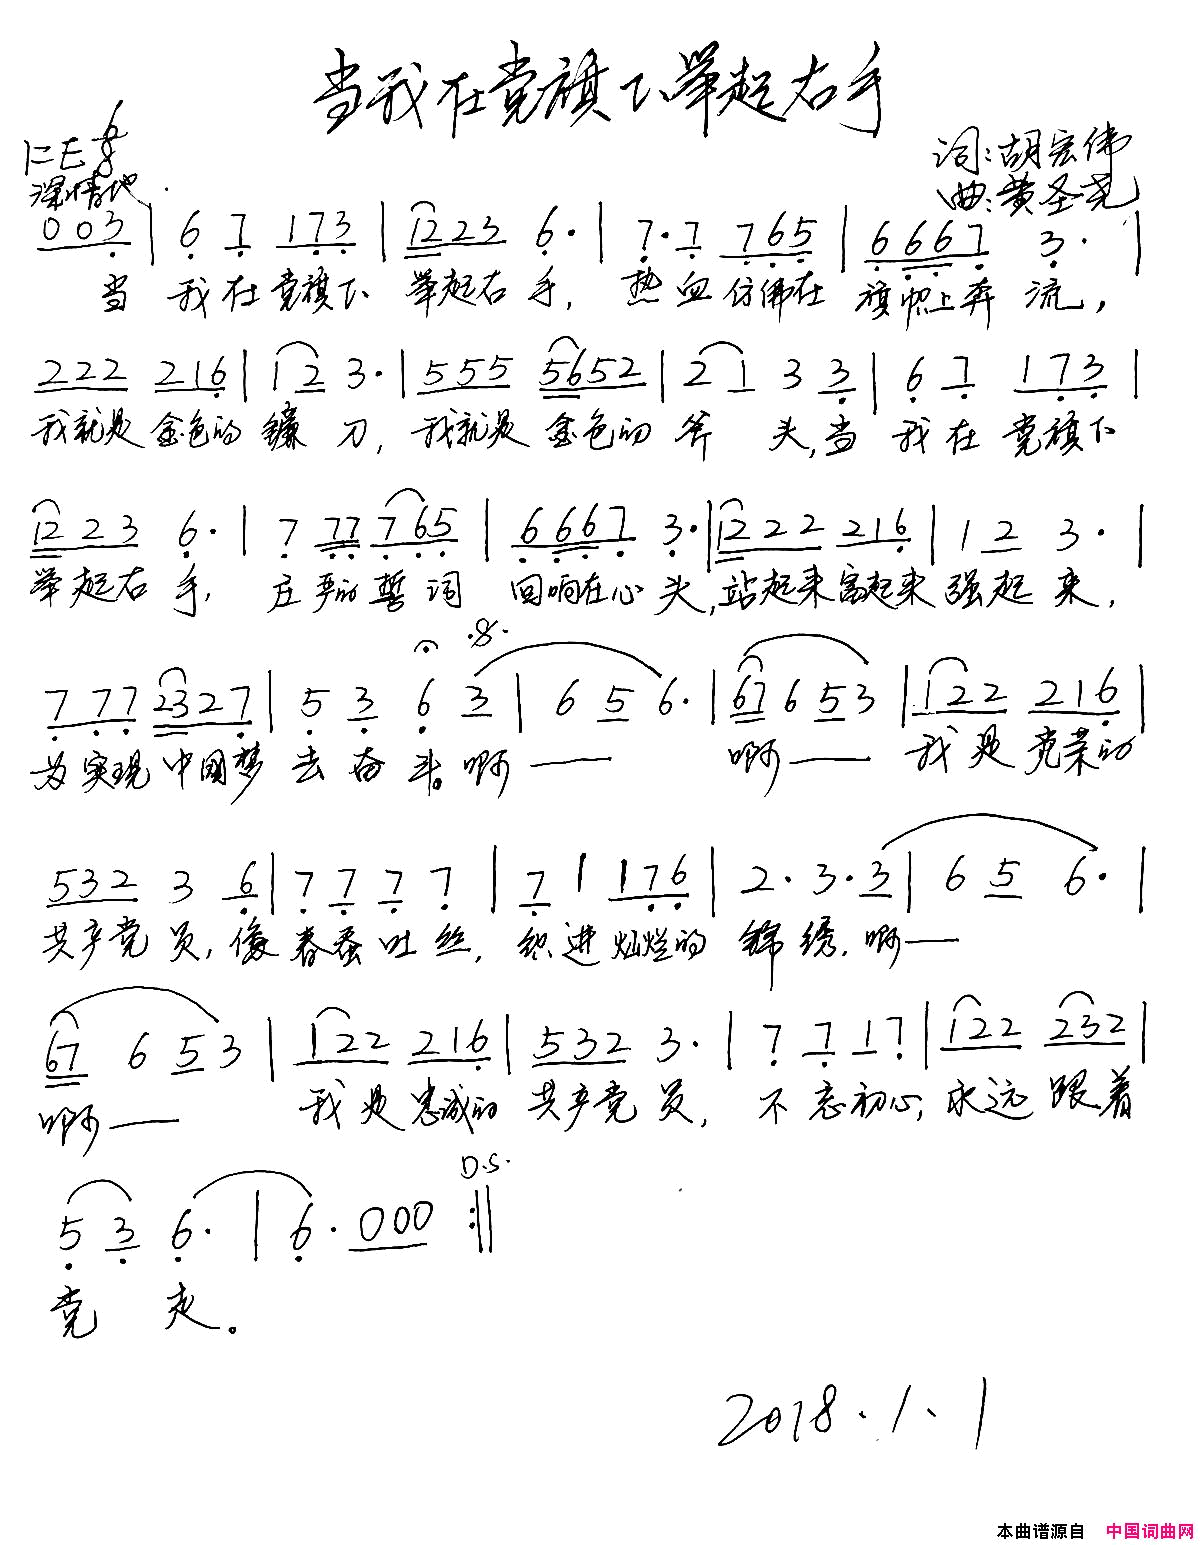 当我在党旗下举起右手
1=E 6/8
词:胡宏伟
深情地
曲:黄圣尧
0 0 3 | 6 7 1 7 3 | 1 2 2 3 6· | 7· 7 7 6 5 | 6 6 6 7 3· |
当 我在党旗下 举起右手, 热血仿佛在 旗帜上奔流,
2 2 2 2 1 6 | 1 2 3· | 5 5 5 5 6 5 2 | 2 1 3 3 | 6 7 1 7 3 |
我就是 金色的 镰刀, 我就是 金色的 斧头,当 我在 党旗下
1 2 2 3 6· | 7 7 7 7 6 5 | 6 6 6 7 3· | 1 2 2 2 2 1 6 | 1 2 3· |
举起右手, 庄严的誓词 回响在心头,站起来富起来 强起来,
D.S.
7 7 7 2 3 2 7 | 5 3 6 3 | 6 5 6· | 6 7 6 5 3 | 1 2 2 2 1 6 |
为实现 中國梦 去奋斗。啊—— 啊—— 我是 光荣的
5 3 2 3 6 | 7 7 7 7 | 7 1 1 7 6 | 2· 3· 3 | 6 5 6· |
共产党员,像 春蚕吐丝, 织进灿烂的 锦绣.啊——
6 7 6 5 3 | 1 2 2 2 1 6 | 5 3 2 3· | 7 7 1 7 | 1 2 2 2 3 2 |
啊—— 我是忠诚的 共产党员, 不忘初心,永远 跟着
5 3 6· | 6· 0 0 0 :||
党 走。
2018.1.1
本曲谱源自 中国词曲网